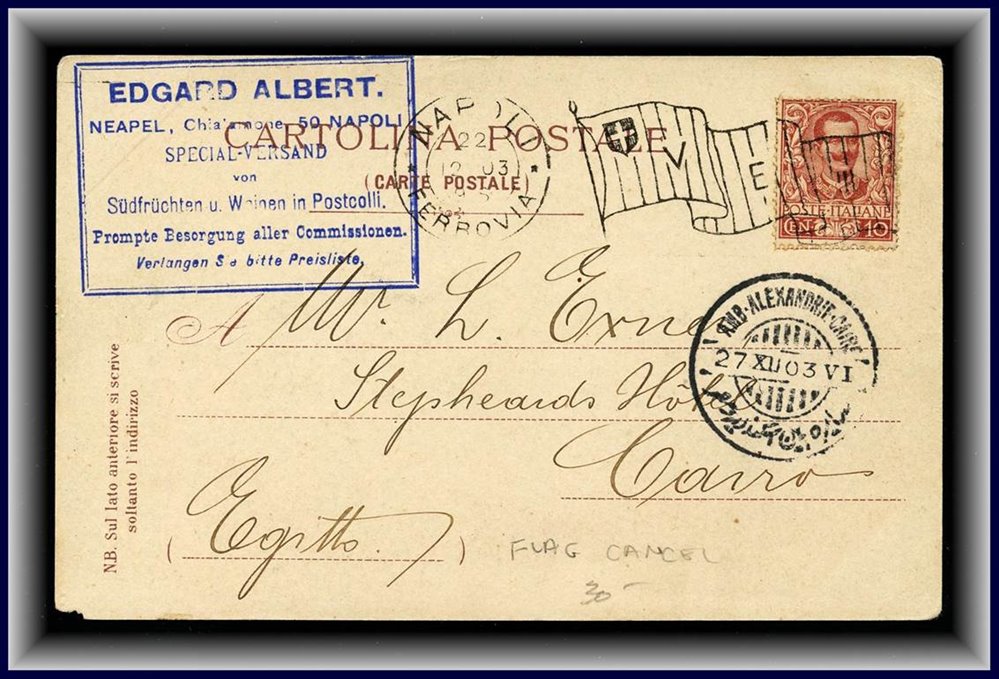 EDGARD ALBERT.
NEAPEL, Chiatamone 50 NAPOLI
SPECIAL-VERSAND
von
Südfrüchten u. Weinen in Postcolli.
Prompte Besorgung aller Commissionen.
Verlangen Sie bitte Preisliste.
CARTOLINA POSTALE
(CARTE POSTALE)
NAPOLI
22
12 03
FERROVIA
V E
M
V E
III
POSTE ITALIANE
CENT. 10
AMB·ALEXANDRIE-CAIRE
27 XII 03 VI
A Mr. L. Exner
Stepheards Hôtel
Cairo
(Egitto.)
N.B. Sul lato anteriore si scrive
soltanto l'indirizzo
FLAG CANCEL
30-